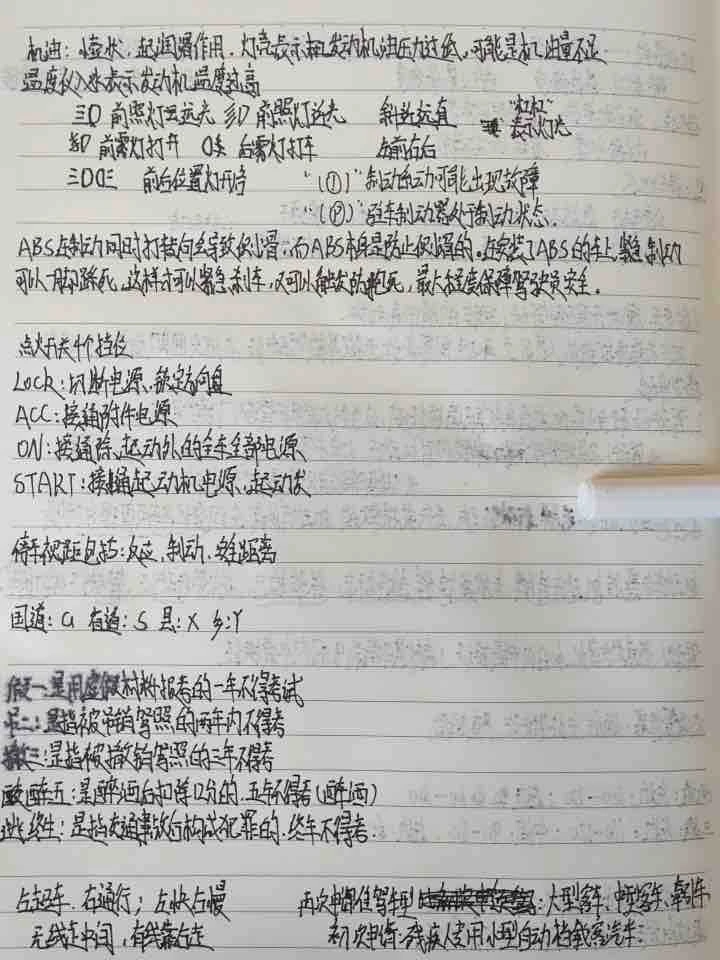 机油：壶状，起润滑作用．灯亮表示机发动机油压力过低，可能是机油量不足
温度仪入水表示发动机温度过高
三D 前照灯远光 彡D 前照灯近光 斜近远直 "杠杠"
表示灯光
前雾灯打开 后雾灯打开 左前右后
三DD三 前后位置灯开启 "(!)" 制动系动可能出现故障
"(P)" 驻车制动器处于制动状态．
ABS与制动同时打转向会导致侧滑．而ABS本身是防止侧滑的．在安装了ABS的车上，紧急制动
可以一脚踩死，这样才可以紧急刹车，又可以触发防抱死，最大程度保障驾驶员安全．
点火开关4个挡位
LOCK：切断电源、锁定方向盘
ACC：接通附件电源
ON：接通除起动外的全车全部电源
START：接通起动机电源、起动发
停车视距包括：反应、制动、安全距离
国道：G 省道：S 县：X 乡：Y
假一：是用虚假材料报考的一年不得考试
吊二：是指被吊销驾照的两年内不得考
撤三：是指被撤销驾照的三年不得考
醉五：是醉酒后扣除12分的．五年不得考(醉酒)
逃终生：是指交通事故后构成犯罪的．终年不得考．
左超车．右通行；左快右慢 再次申领准驾车型：大型客车、中型客车、牵引车
无线走中间，有线靠右走 初次申请：残疾人专用小型自动挡载客汽车．